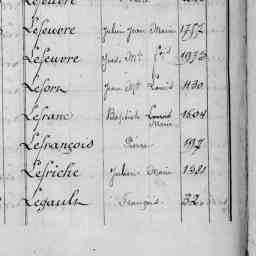 Lefeuvre Julien Jean Marie 1757
Lefeuvre Yves Mie fçs 1975
Lefort Jean Mie Louis 1130
Lefranc Baptiste Louis Marie 1604
Lefrançois Pierre 197
Lefriche Julien Marie 1981
Legault François 32